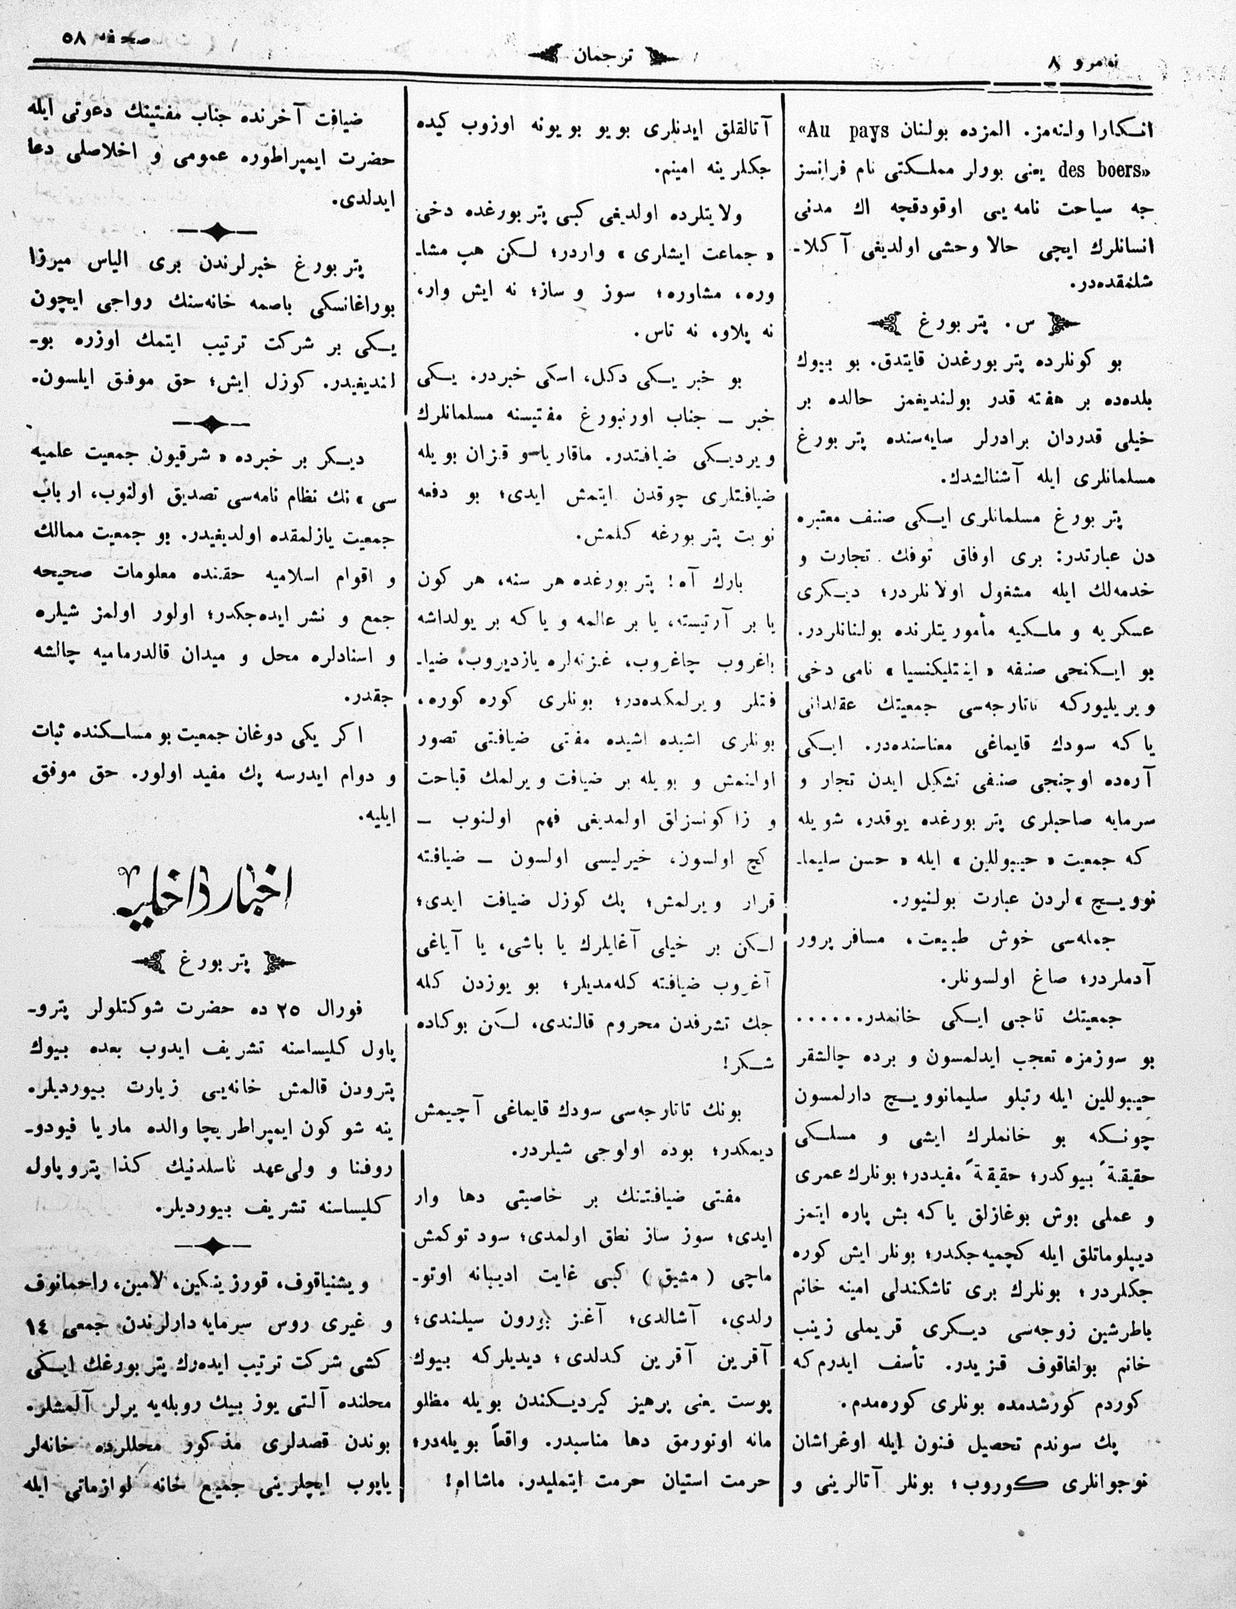 نومرو ٨
ترجمان
صحیفه ٥٨
انكارا ولنه‌مز. المزده بولنان Au pays»
«des boers یعنی بوورلر مملكتی نام فرانسز
جه سیاحت نامه‌یی اوقودقچه اك مدنی
انسانلرك ایچی حالا وحشی اولدیغی آ كلا-
شلمقده‌در.
س. پتر بورغ
بو كونلرده پتر بورغدن قایتدق. بو بیوك
بلده‌ده بر هفته قدر بولندیغمز حالده بر
خیلی قدردان برادرلر سایه‌سنده پتر بورغ
مسلمانلری ایله آشنالشدك.
پتر بورغ مسلمانلری ایكی صنف معتبره
دن عبارتدر: بری اوفاق توفك تجارت و
خدمه‌لك ایله مشغول اولانلردر؛ دیكری
عسكریه و ملكیه مأموریتلرنده بولنانلردر.
بو ایكنجی صنفه «اینتلیكنسیا» نامی دخی
ویریلیوركه تاتارجه‌سی جمعیتك عقلدانی
یا كه سودك قایماغی معناسنده‌در. ایكی
آره‌ده اوچنجی صنفی تشكیل ایدن تجار و
سرمایه صاحبلری پتر بورغده یوقدر، شویله
كه جمعیت «حبیبوللین» ایله «حسن سلیما-
نوویچ» لردن عبارت بولنیور.
جمله‌سی خوش طبیعت، مسافر پرور
آدملردر؛ صاغ اولسونلر.
جمعیتك تاجی ایكی خانمدر......
بو سوزمزه تعجب ایدلمسون و برده چالشقر
حبیبوللین ایله رتبلو سلیمانوویچ دارلمسون
چونكه بو خانملرك ایشی و مسلكی
حقیقةً بیوكدر؛ حقیقةً مفیددر؛ بونلرك عمری
و عملی بوش بوغازلق یا كه بش پاره ایتمز
دیپلوماتلق ایله كچمیه‌جكدر؛ بونلر ایش كوره
جكلردر؛ بونلرك بری تاشكندلی امینه خانم
باطرشین زوجه‌سی دیكری قریملی زینب
خانم بولغاقوف قزیدر. تأسف ایدرم كه
كوردم كورشدمده بونلری كوره‌مدم.
پك سوندم تحصیل فنون ایله اوغراشان
نوجوانلری كوروب؛ بونلر آتالرینی و
آتالقلق ایدنلری بویو بویونه اوزوب كیده
جكلرینه امینم.
ولایتلرده اولدیغی كبی پتر بورغده دخی
«جماعت ایشلری» واردر؛ لكن هپ مشا-
وره، مشاوره؛ سوز و ساز؛ نه ایش وار،
نه پلاو، نه تاس.
بو خبر یكی دكل، اسكی خبردر. یكی
خبر — جناب اورنبورغ مفتیسنه مسلمانلرك
ویردیكی ضیافتدر. ماقاریاسو قزان بویله
ضیافتلری چوقدن ایتمش ایدی؛ بو دفعه
نوبت پتر بورغه كلمش.
بارك آه! پتر بورغده هر سنه، هر كون
یا بر آرتیسته، یا بر عالمه و یا كه بر یولداشه
باغروب چاغروب، غزنه‌لره یازدیروب، ضیا-
فتلر ویرلمكده‌در؛ بونلری كوره كوره،
بونلری اشیده اشیده مفتی ضیافتی تصور
اولنمش و بویله بر ضیافت ویرلمك قباحت
و زا كونسزلق اولمدیغی فهم اولنوب —
كچ اولسون، خیرلیسی اولسون — ضیافته
قرار ویرلمش؛ پك كوزل ضیافت ایدی؛
لكن بر خیلی آغایلرك یا باشی، یا آیاغی
آغروب ضیافته كله‌مدیلر؛ بو یوزدن كله
جك تشرفدن محروم قالندی، لكن بوكاده
شكر!
بونك تاتارجه‌سی سودك قایماغی آچیمش
دیمكدر؛ بوده اولوجی شیلردر.
مفتی ضیافتنك بر خاصیتی دها وار
ایدی؛ سوز ساز نطق اولمدی؛ سود توكمش
ماچی (مشیق) كبی غایت ادیبانه اوتو-
رلدی، آشالدی؛ آغز بورون سیلندی؛
آقرین آقرین كدلدی؛ دیدیلركه بیوك
پوست یعنی پرهیز كیردیكندن بویله مظلو
مانه اوتورمق دها مناسبدر. واقعاً بویله‌در؛
حرمت استیان حرمت ایتملیدر. ماشاالله!
ضیافت آخرنده جناب مفتینك دعوتی ایله
حضرت ایمپراطوره عمومی و اخلاصلی دعا
ایدلدی.
پتر بورغ خبرلرندن بری الیاس میرزا
بوراغانسكی باصمه خانه‌سنك رواجی ایچون
یكی بر شركت ترتیب ایتمك اوزره بو-
لندیغیدر. كوزل ایش؛ حق موفق ایلسون.
دیكر بر خبرده «شرقیون جمعیت علمیه
سی» نك نظام نامه‌سی تصدیق اولنوب، ارباب
جمعیت یازلمقده اولدیغیدر. بو جمعیت ممالك
و اقوام اسلامیه حقنده معلومات صحیحه
جمع و نشر ایده‌جكدر؛ اولور اولمز شیلره
و اسنادلره محل و میدان قالدرمامیه چالشه
جقدر.
اكر یكی دوغان جمعیت بو مسلكنده ثبات
و دوام ایدرسه پك مفید اولور. حق موفق
ایلیه.
اخبار داخلیه
پتر بورغ
فورال ٢٥ ده حضرت شوكتلولر پترو-
پاول كلیساسنه تشریف ایدوب بعده بیوك
پترودن قالمش خانه‌یی زیارت بیوردیلر.
ینه شو كون ایمپراطریچا والده ماریا فیودو-
روفنا و ولی عهد ناسلدنیك كذا پترو پاول
كلیساسنه تشریف بیوردیلر.
ویشنیاقوف، قورزینكین، لامین، راحمانوف
و غیری روس سرمایه دارلرندن جمعی ١٤
كشی شركت ترتیب ایده‌رك پتر بورغك ایكی
محلنده آلتی یوز بیك روبله‌یه یرلر آلمشلر.
بوندن قصدلری مذكور محللرده خانه‌لر
یاپوب ایچلرینی جمیع خانه لوازماتی ایله